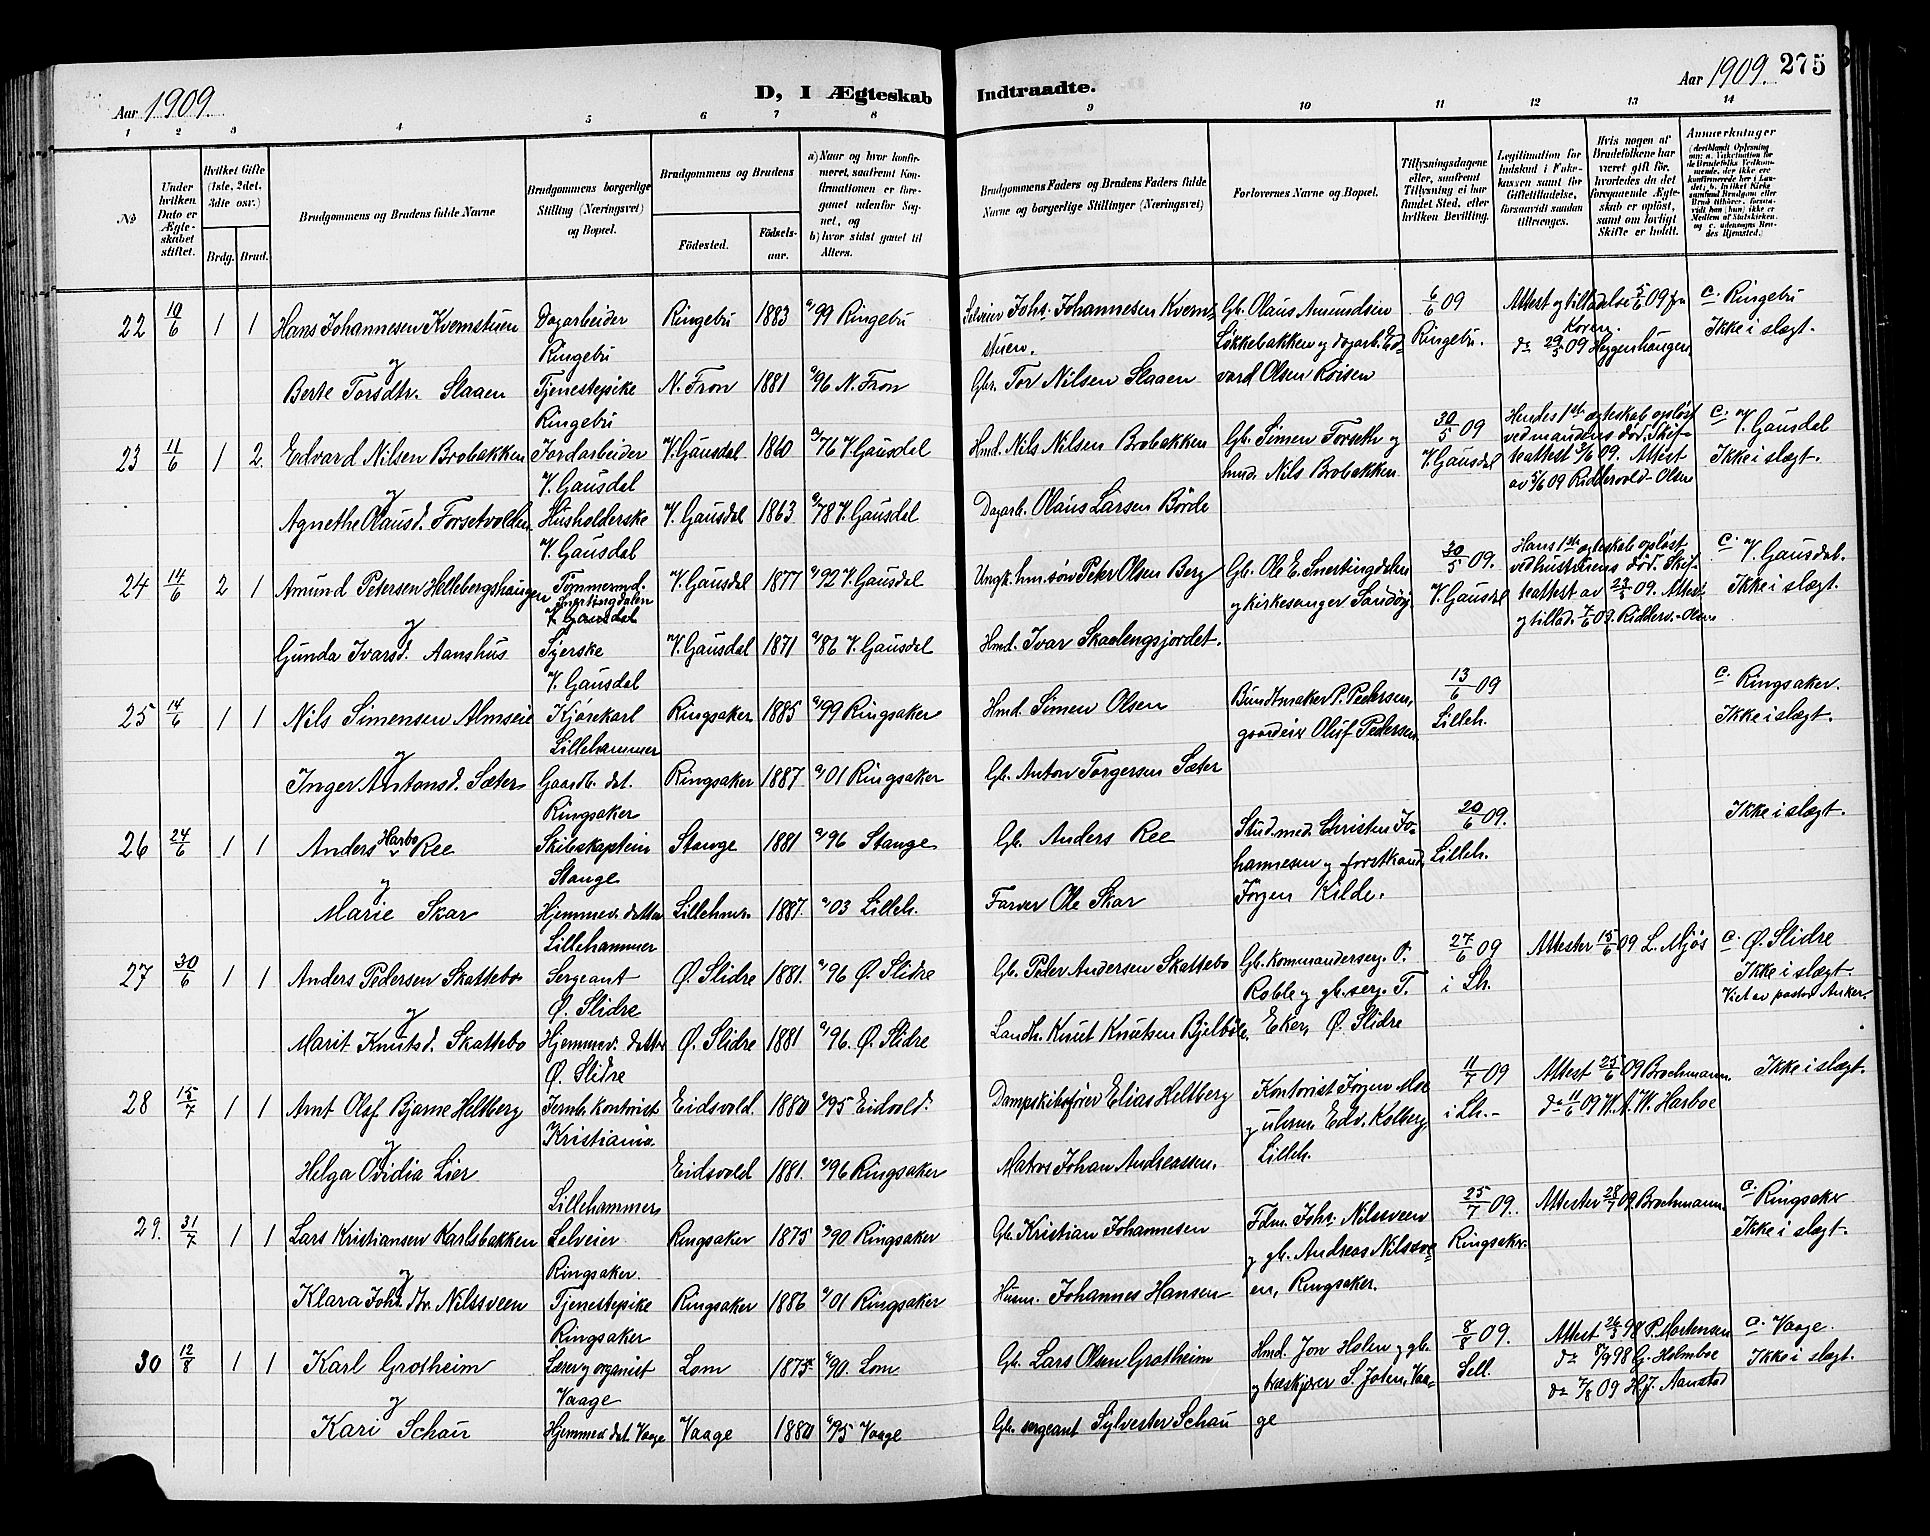 Aar 1909.
D, I Ægteskab Indtraadte.
Aar 1909. 275
1 2 3 4 5 6 7 8 9 10 11 12 13 14
No
Under hvilken Dato er Ægteskabet stiftet.
Hvilket Gifte (1ste, 2det, 3die osv.)
Brdg. Brud.
Brudgommens og Brudens fulde Navne
Brudgommens borgerlige Stilling (Næringsvei) og Bopæl.
Brudgommens og Brudens
Födested. Födselsaar.
a) Naar og hvor konfirmeret, saafremt Konfirmationen er foregaaet udenfor Sognet, og
b) hvor sidst gaaet til Alters.
Brudgommens Faders og Brudens Faders fulde Navne og borgerlige Stillinger (Næringsvei)
Forlovernes Navne og Bopæl.
Tillysningsdagene eller, saafremt Tillysning ei har fundet Sted, efter hvilken Bevilling.
Legitimation for Indskud i Enkekassen samt for Giftetilladelse, forsaavidt saadan tiltrænges.
Hvis nogen af Brudefolkene har været gift før, hvorledes da det foregaaende Ægteskab er opløst, samt om lovligt Skifte er holdt.
Anmærkninger
22 10/6 1 1 Hans Johannesen Kvemstuen Dagarbeider Ringebu Ringebu 1883 99 Ringebu Selveier Johs. Johannesen Kvemstuen. Gb. Olaus Amundsen Løkkebakken og dagarb. Edvard Olsen Roisen 6/6 09 Ringebu. Attest og tilladelse 5/6 09 fra Koren. do 29/5 09 Heggenhaugen c. Ringebu Ikke i slægt.
og
Berte Torsdtr. Slaaen Tjenestepike Ringebu N. Fron 1881 96 N. Fron Gbr. Tor Nilsen Slaaen
23 11/6 1 2. Edvard Nilsen Brobakken Jordarbeider V. Gausdal V. Gausdal 1860 76 V. Gausdal Hmd. Nils Nilsen Brobakken Gb. Simen Forseth og hmd. Nils Brobakken 30/5 09 V. Gausdal Hendes 1ste ægteskab opløst ved mandens død. Skifteattest 3/6 09. Attest av 5/6 09 Riddervold-Olsen c. V. Gausdal Ikke i slægt.
og
Agnethe Olausd. Forsetvolden Husholderske V. Gausdal V. Gausdal 1863 78 V. Gausdal Dagarb. Olaus Larsen Börde
24 14/6 2 1 Amund Petersen Hellebergshaugen Tömmermd. Svertingdalen V. Gausdal V. Gausdal 1877 92 V. Gausdal Ungk. hm.søn Peter Olsen Berg Gb. Ole E. Svertingdalen og kirkesanger Sandöy 30/5 09. V. Gausdal Hans 1ste ægteskab opløst ved hustruens död. Skifteattest av 23/5 09. Attest og tillad. 7/6 09. Ridderv.-Olsen c. V. Gausdal. Ikke i slægt.
og
Gunda Ivarsd. Aanshus Syerske V. Gausdal V. Gausdal 1871 86 V. Gausdal Hmd. Ivar Skaalengsjordet.
25 14/6 1 1 Nils Simensen Almseie Kjørekarl Lillehammer Ringsaker 1885 99 Ringsaker Hmd. Simen Olsen Bundtmaker P. Pedersen, gaardeier Oluf Pedersen 13/6 09 Lilleh. c. Ringsaker. Ikke i slægt.
og
Inger Antonsd. Sæter Gaardb. dat. Ringsaker Ringsaker 1887 01 Ringsaker Gb. Anton Torgersen Sæter
26 24/6 1 1 Anders Harbo Ree Skibskaptein Stange Stange 1881 96 Stange Gb. Anders Ree Stud. med. Christen Johannesen og forstkand. Jörgen Kilde. 20/6 09. Lilleh. Ikke i slægt.
og
Marie Skar Hjemmev. datter Lillehammer Lillehmr. 1887. 03 Lilleh. Farver Ole Skar
27 30/6 1 1 Anders Pedersen Skattebo Sergeant Ø. Slidre Ø. Slidre 1881. 96 Ø. Slidre Gb. Peder Andersen Skattebo Gb. kommandersерg. P. Roble og gb. serg. T. Eker, Ø. Slidre 27/6 09 i Lh. Attester 15/6 09 L. Mjös c. Ø. Slidre Ikke i slægt. Viet av pastor Anker.
og
Marit Knutsd. Skattebo Hjemmev. datter Ø. Slidre Ø. Slidre 1881 96. Ø. Slidre Landh. Knut Knutsen Bjelbøle.
28 15/7 1 1 Arnt Olaf Bjarne Heltberg Jernb. kontorist Kristiania. Eidsvold. 1880 95 Eidsvold. Dampskibsfører Elias Heltberg Kontorist Jørgen Moe og uhrm. Edv. Kolberg, Lilleh. 11/7 09 i Lh. Attest 25/6 09 Brochmann. do 11/6 09 W. A. W. Harboe Ikke i slægt.
og
Helga Ovidia Lier Lillehammer Eidsvold 1881. 96 Ringsaker Matros Johan Andreassen.
29. 31/7 1 1 Lars Kristiansen Karlsbakken Selveier Ringsaker. Ringsaker 1875 90. Ringsaker Gb. Kristian Johannesen Fdm. Johs. Nilssveen og gb. Andreas Nilssveen, Ringsaker. 25/7 09. Ringsakr. Attester 28/7 09. Brochmann. c. Ringsaker Ikke i slægt.
og
Klara Johs. dtr. Nilssveen Tjenestepike Ringsaker Ringsaker 1886 01 Ringsaker Husm. Johannes Hansen
30 12/8 1 1 Karl Grotheim Lærer og organist Vaage Lom 1875 90. Lom Gb. Lars Olsen Grotheim Hmd. Jon Holen og gb. og træskjærer S. Jolen, Vaage 8/8 09. Sell. Attest 26/3 98 P. Mortensen do 8/9 98 G. Holmboe do 7/8 09 H.J. Aanstad c. Vaage. Ikke i slægt.
og
Kari Schau Hjemmev. dat. Vaage Vaage 1880 95 Vaage Gb. sergeant Sylvester Schau